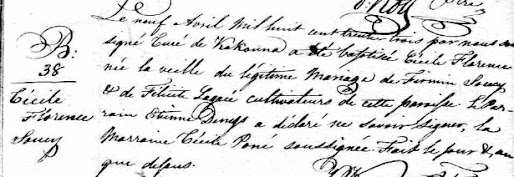 B:
38
Cécile
Florence
Soucy
Le neuf Avril Mil huit cent trente trois par nous sou
signé Curé de Kakouna a été baptisée Cécile Florence
née la veille du légitime Mariage de Firmin Soucy
& de Félicité Lagacé cultivateurs de cette paroisse. Le Par
rain Etienne Denys a déclaré ne savoir signer, la
Marraine Cécile soussignée. Fait le jour & an
que dessus.